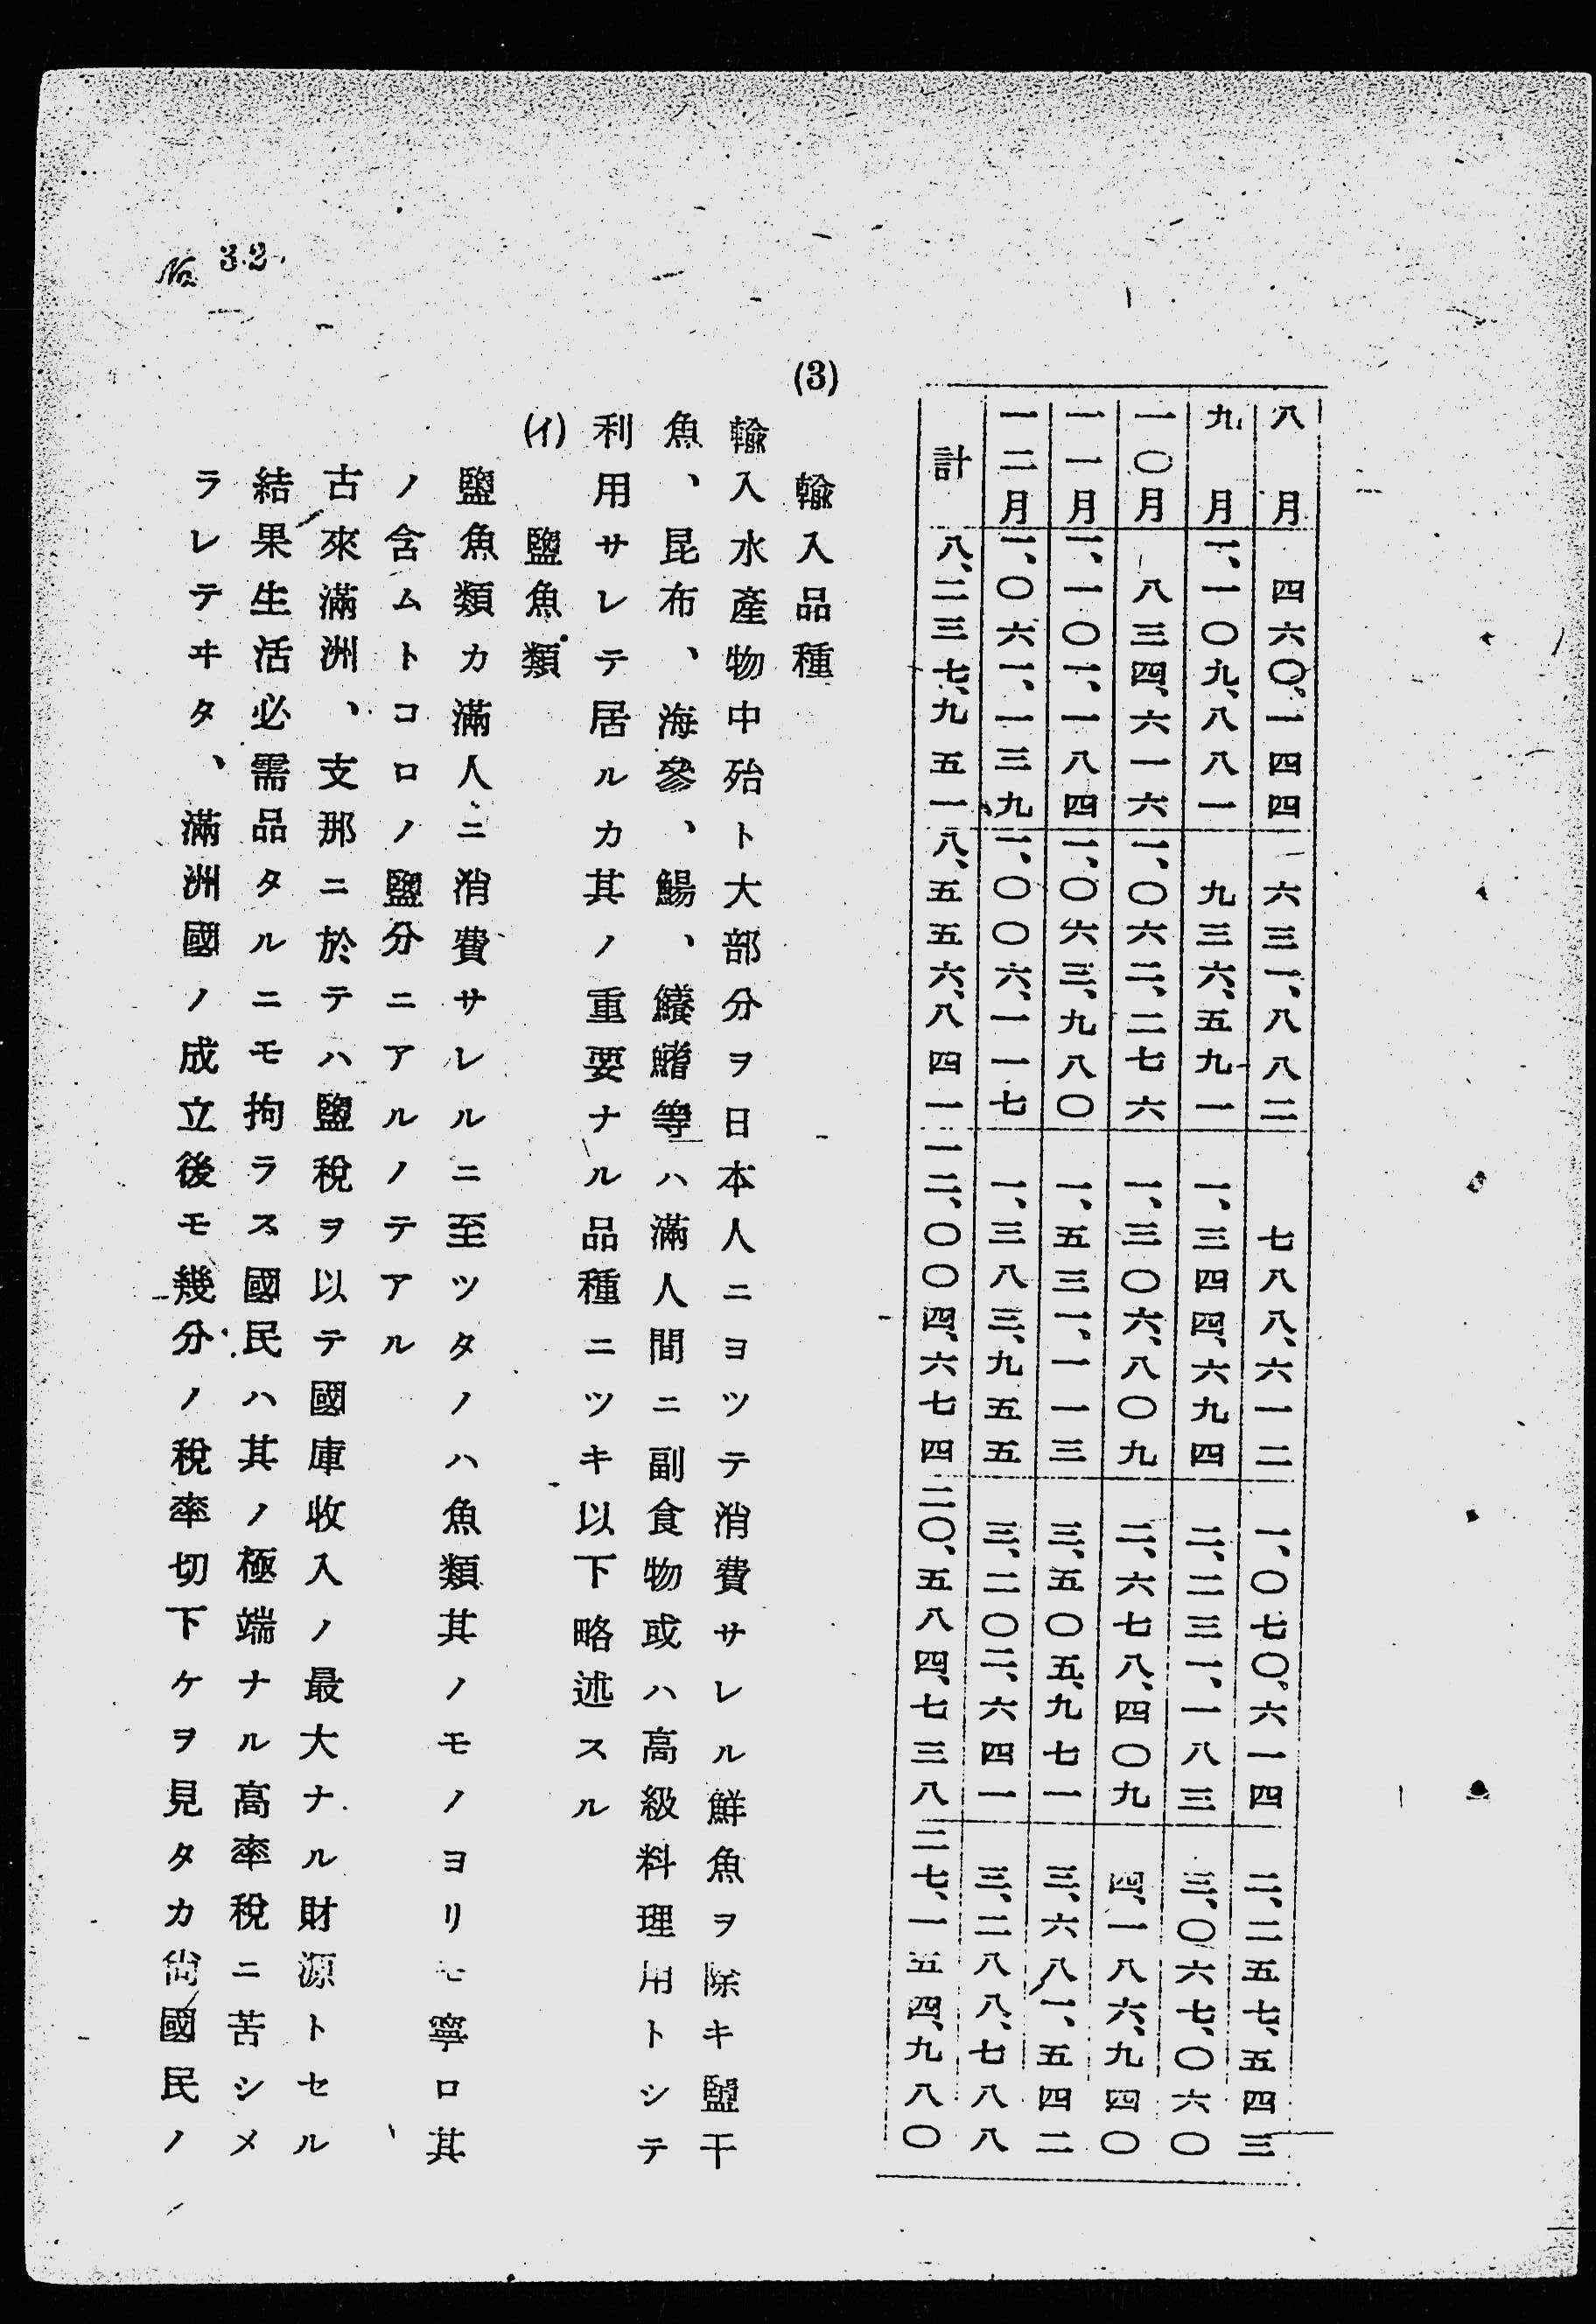 No. 32.
八月 四六〇、一四四 六三一、八八二 七八八、六一二 一、〇七〇、六一四 二、二五七、五四三
九月 一、一〇九、八八一 九三六、五九一 一、三四四、六九四 二、二三一、一八三 三、〇六七、〇六〇
一〇月 八三四、六一六 一、〇六二、二七六 一、三〇六、八〇九 二、六七八、四〇九 四、一八六、九四〇
一一月 一、一〇一、一八四 一、〇六三、九八〇 一、五三一、一一三 三、五〇五、九七一 三、六八一、五四二
一二月 一、〇六一、一三九 一、〇〇六、一一七 一、三八三、九五五 三、二〇二、六四一 三、二八八、七八八
計 八、二三七、九五一 八、五五六、八四一 一二、〇〇四、六七四 二〇、五八四、七三八 三七、一五四、九八〇
(3) 輸入品種
輸入水產物中殆ト大部分ヲ日本人ニヨツテ消費サレル鮮魚ヲ除キ鹽干
魚、昆布、海參、鯣、鱶鰭等ハ滿人間ニ副食物或ハ高級料理用トシテ
利用サレテ居ルカ其ノ重要ナル品種ニツキ以下略述スル
(イ) 鹽魚類
鹽魚類カ滿人ニ消費サレルニ至ツタノハ魚類其ノモノヨリモ寧ロ其
ノ含ムトコロノ鹽分ニアルノテアル
古來滿洲、支那ニ於テハ鹽稅ヲ以テ國庫收入ノ最大ナル財源トセル
結果生活必需品タルニモ拘ラス國民ハ其ノ極端ナル高率稅ニ苦シメ
ラレテヰタ、滿洲國ノ成立後モ幾分ノ稅率切下ケヲ見タカ尙國民ノ